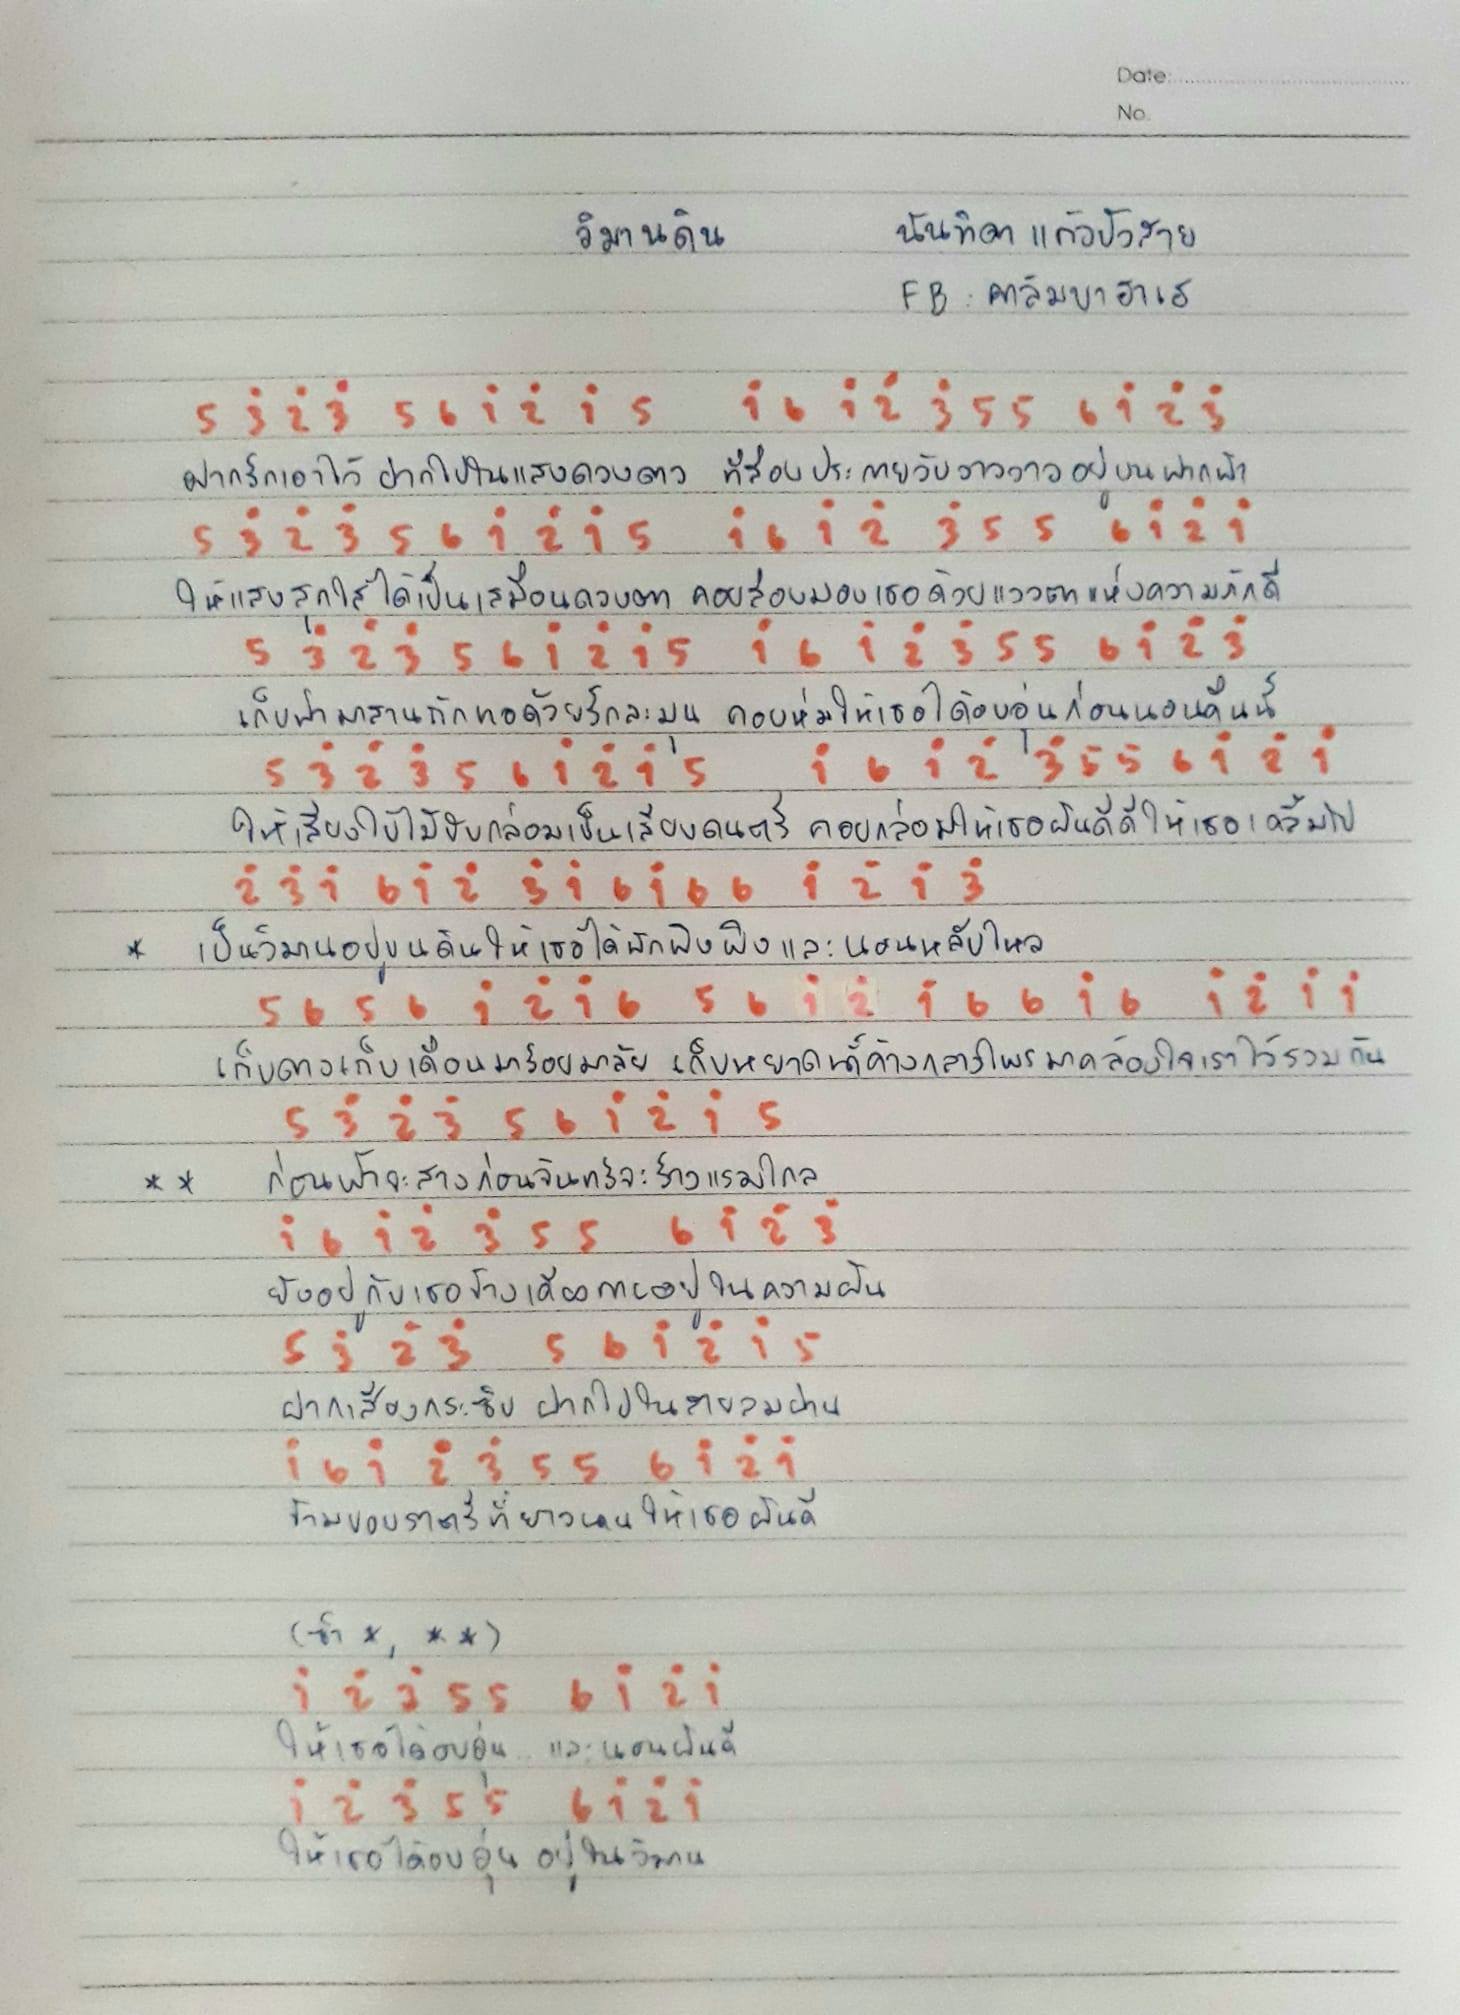 Date:
No.
วิมานดิน นันทิดา แก้วบัวสาย
FB : คาลิมบาฮาเฮ
5 3̇ 2̇ 3̇ 5 6 1̇ 2̇ 1̇ 5 1̇ 6 1̇ 2̇ 3̇ 5 5 6 1̇ 2̇ 3̇
ฝากรักเอาไว้ ฝากไปในแสงดวงดาว ที่ส่องประกายวับวาววาวอยู่บนฟากฟ้า
5 3̇ 2̇ 3̇ 5 6 1̇ 2̇ 1̇ 5 1̇ 6 1̇ 2̇ 3̇ 5 5 6 1̇ 2̇ 1̇
ให้แสงสุกใสได้เป็นเสมือนดวงตา คอยส่องมองเธอด้วยแววตาแห่งความภักดี
5 3̇ 2̇ 3̇ 5 6 1̇ 2̇ 1̇ 5 1̇ 6 1̇ 2̇ 3̇ 5 5 6 1̇ 2̇ 3̇
เก็บฟ้ามาสานถักทอด้วยรักละมุน คอยห่มให้เธอได้อบอุ่นก่อนนอนคืนนี้
5 3̇ 2̇ 3̇ 5 6 1̇ 2̇ 1̇ 5 1̇ 6 1̇ 2̇ 3̇ 5 5 6 1̇ 2̇ 1̇
ให้เสียงใบไม้ขับกล่อมเป็นเสียงดนตรี คอยกล่อมให้เธอฝันดีดีให้เธอเคลิ้มไป
2̇ 3̇ 1̇ 6 1̇ 2̇ 3̇ 1̇ 6 1̇ 6 6 1̇ 2̇ 1̇ 3̇
* เป็นวิมานอยู่บนดินให้เธอได้พักพิงพิงและนอนหลับใหล
5 6 5 6 1̇ 2̇ 1̇ 6 5 6 1̇ 2̇ 1̇ 6 6 1̇ 6 1̇ 2̇ 1̇ 1̇
เก็บดาวเก็บเดือนมาร้อยมาลัย เก็บหยาดน้ำค้างกลางไพรมาคล้องใจเราไว้รวมกัน
5 3̇ 2̇ 3̇ 5 6 1̇ 2̇ 1̇ 5
** ก่อนฟ้าจะสางก่อนจันทร์จะร้างแรมไกล
1̇ 6 1̇ 2̇ 3̇ 5 5 6 1̇ 2̇ 3̇
ยังอยู่กับเธอข้างเคียงกายอยู่ในความฝัน
5 3̇ 2̇ 3̇ 5 6 1̇ 2̇ 1̇ 5
ฝากเสียงกระซิบ ฝากไปในสายลมผ่าน
1̇ 6 1̇ 2̇ 3̇ 5 5 6 1̇ 2̇ 1̇
ข้ามขอบราตรีที่ยาวนานให้เธอฝันดี
(ซ้ำ *, **)
1̇ 2̇ 3̇ 5 5 6 1̇ 2̇ 1̇
ให้เธอได้อบอุ่น.. และนอนฝันดี
1̇ 2̇ 3̇ 5 5 6 1̇ 2̇ 1̇
ให้เธอได้อบอุ่น อยู่ในวิมาน